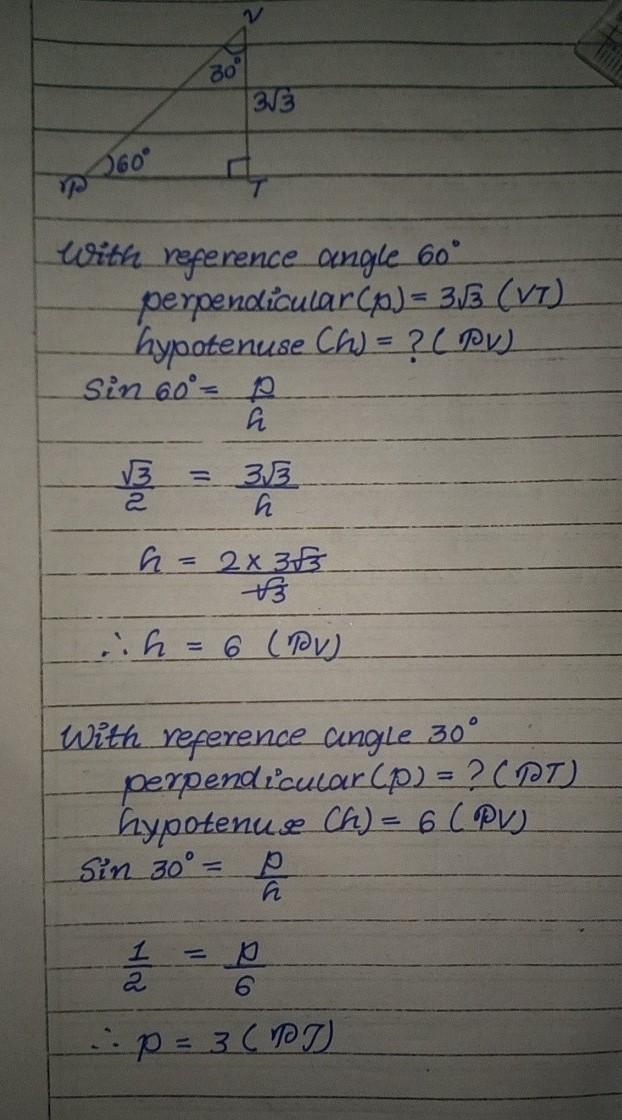 V
30°
3√3
60°
P
T
With reference angle 60°
perpendicular (p) = 3√3 (VT)
hypotenuse (h) = ? (PV)
Sin 60° = p/h
√3/2 = 3√3/h
h = 2 × 3√3/√3
∴ h = 6 (PV)
With reference angle 30°
perpendicular (p) = ? (PT)
hypotenuse (h) = 6 (PV)
Sin 30° = p/h
1/2 = p/6
∴ p = 3 (PT)